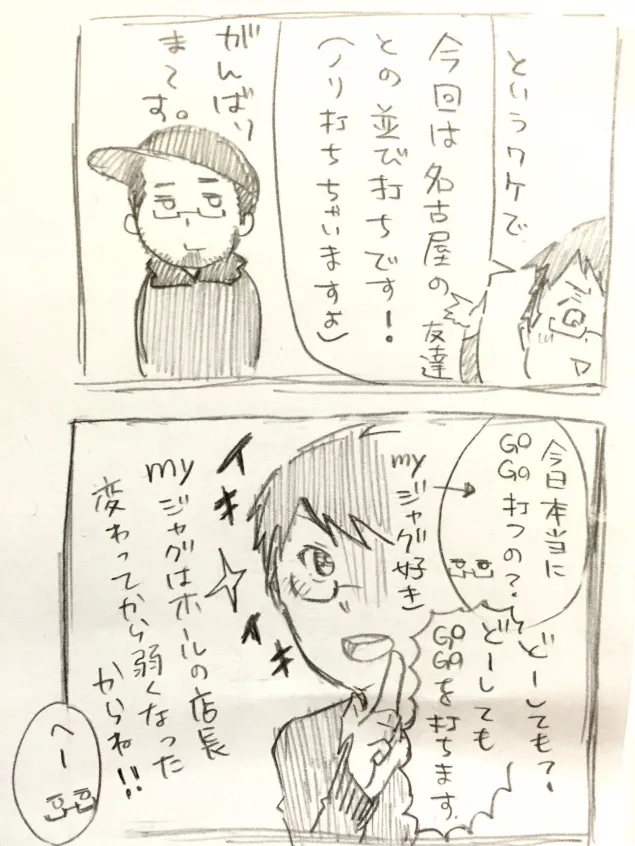 というワケで
今回は名古屋の友達
との並び打ちです!
(ノリ打ちちゃいますよ)
がんばり
まてす。
今日本当に
GOGO打つの?
どーしても?
どーしても
GOGOを打ちます
myジャグ好き
イキイキ
myジャグはホールの店長
変わってから弱くなった
からね!!
へー